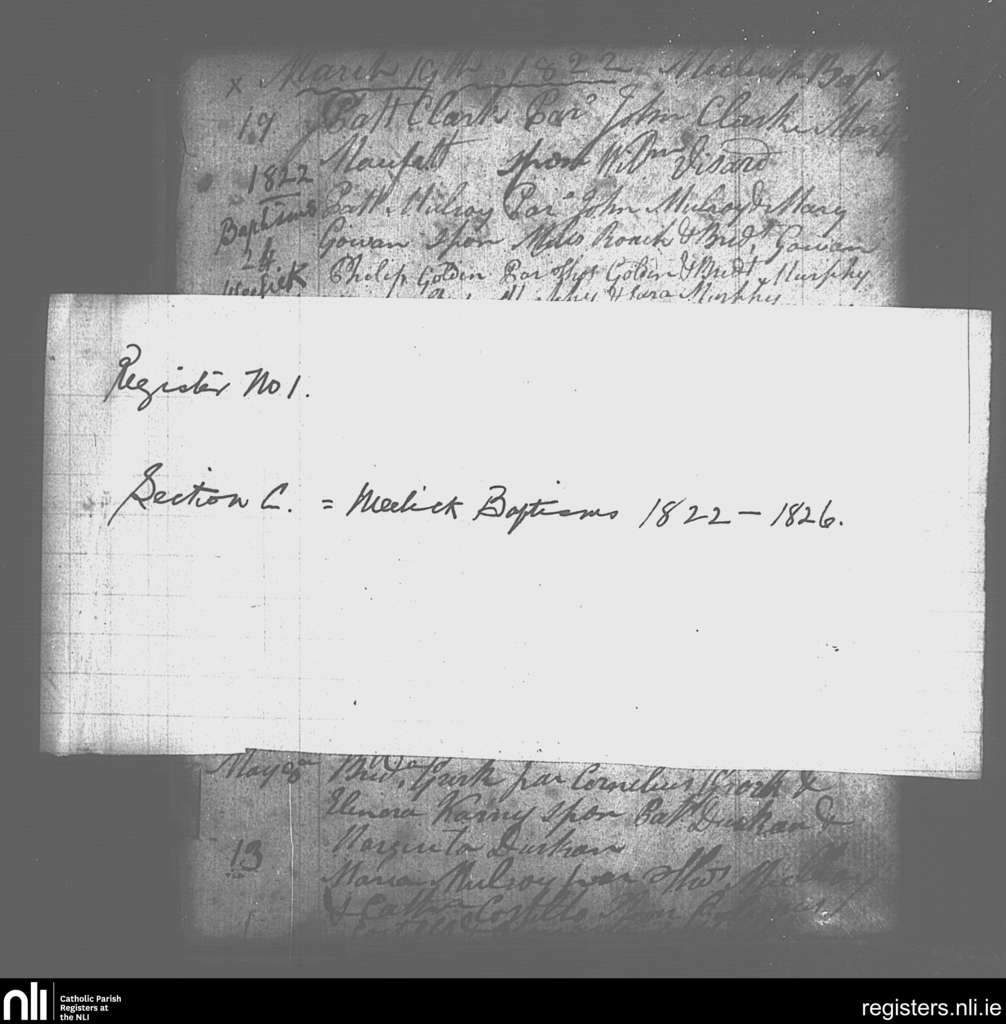 x March 19th 1822 Meelick Bap
19 Patt Clark Par^s John Clark & Mary
spon Wil^m
1822 Patt. Mulroy Par^s John Mulroy & Mary
Baptisms Gowan spon Miles Roach & Brid^t Gowan
24 Philip Golden Par Tho^s Golden & Brid^t Murphy
Meelick & Sara Murphy
Register No 1.
Section C. = Meelick Baptisms 1822 – 1826.
May 8^th Brid^t par Cornelius &
Elenora Karny spon Pat^k Durkan &
13 Durkan
Maria Mulroy par Tho^s
& Cath^n Costello spon
nli Catholic Parish
Registers at
the NLI
registers.nli.ie